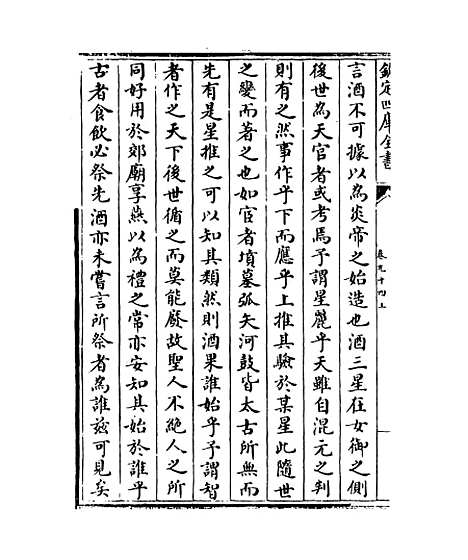 欽定四庫全書
卷九十四上
言酒不可據以為炎帝之始造也酒三星在女御之側
後世為天官者或考焉予謂星麗乎天雖自混元之判
則有之然事作乎下而應乎上推其驗於某星此隨世
之變而著之也如宦者墳墓弧矢河鼓皆太古所無而
先有是星推之可以知其類然則酒果誰始乎予謂智
者作之天下後世循之而莫能廢故聖人不絶人之所
同好用於郊廟享燕以為禮之常亦安知其始於誰乎
古者食飲必祭先酒亦未嘗言所祭者為誰兹可見矣